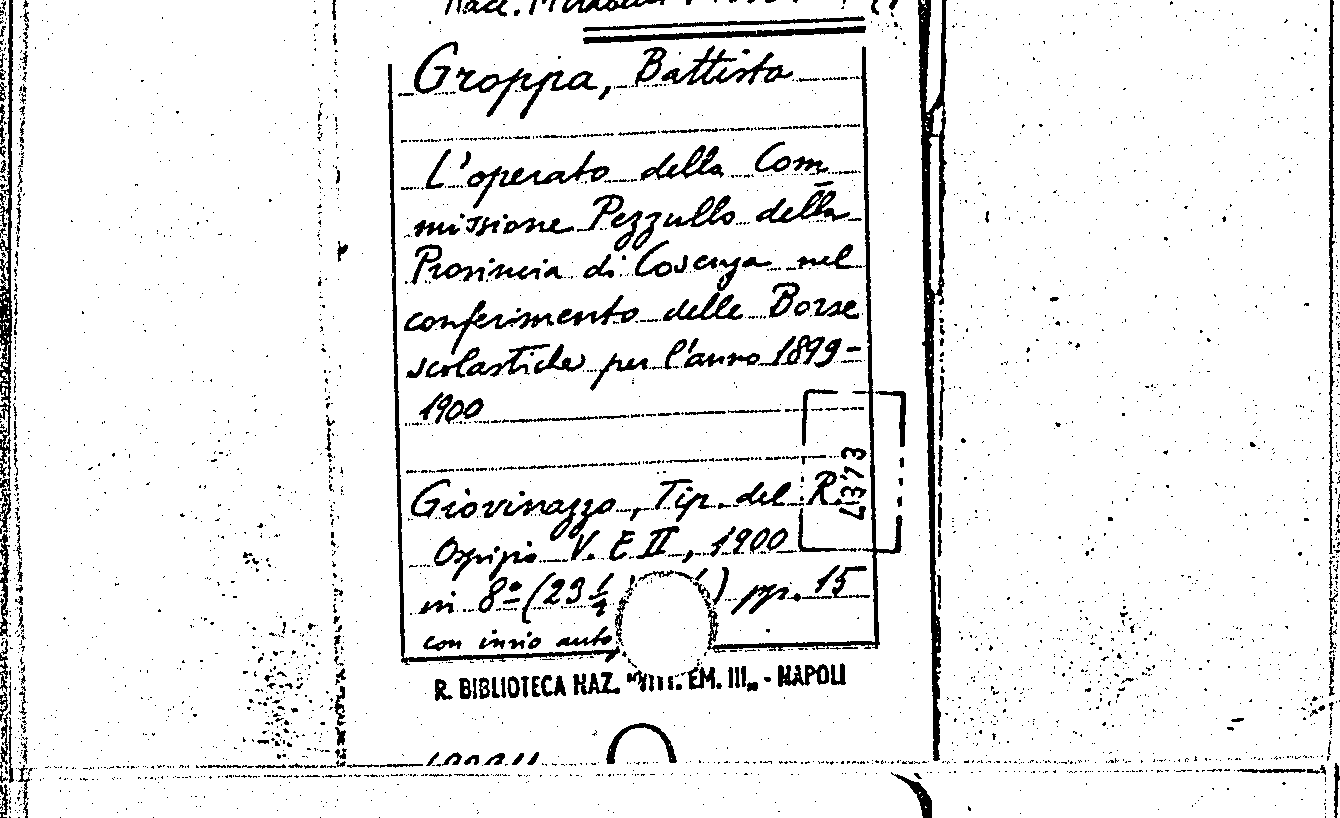 Groppa, Battista
L'operato della Com
missione Pezzullo della
Provincia di Cosenza nel
conferimento delle Borse
scolastiche per l'anno 1899-
1900
4373
Giovinazzo, Tip. del R.
Ospizio V. E II, 1900
in 8º (23 pp. 15
con invio auto
R. BIBLIOTECA NAZ. "VITT. EM. III„ - NAPOLI